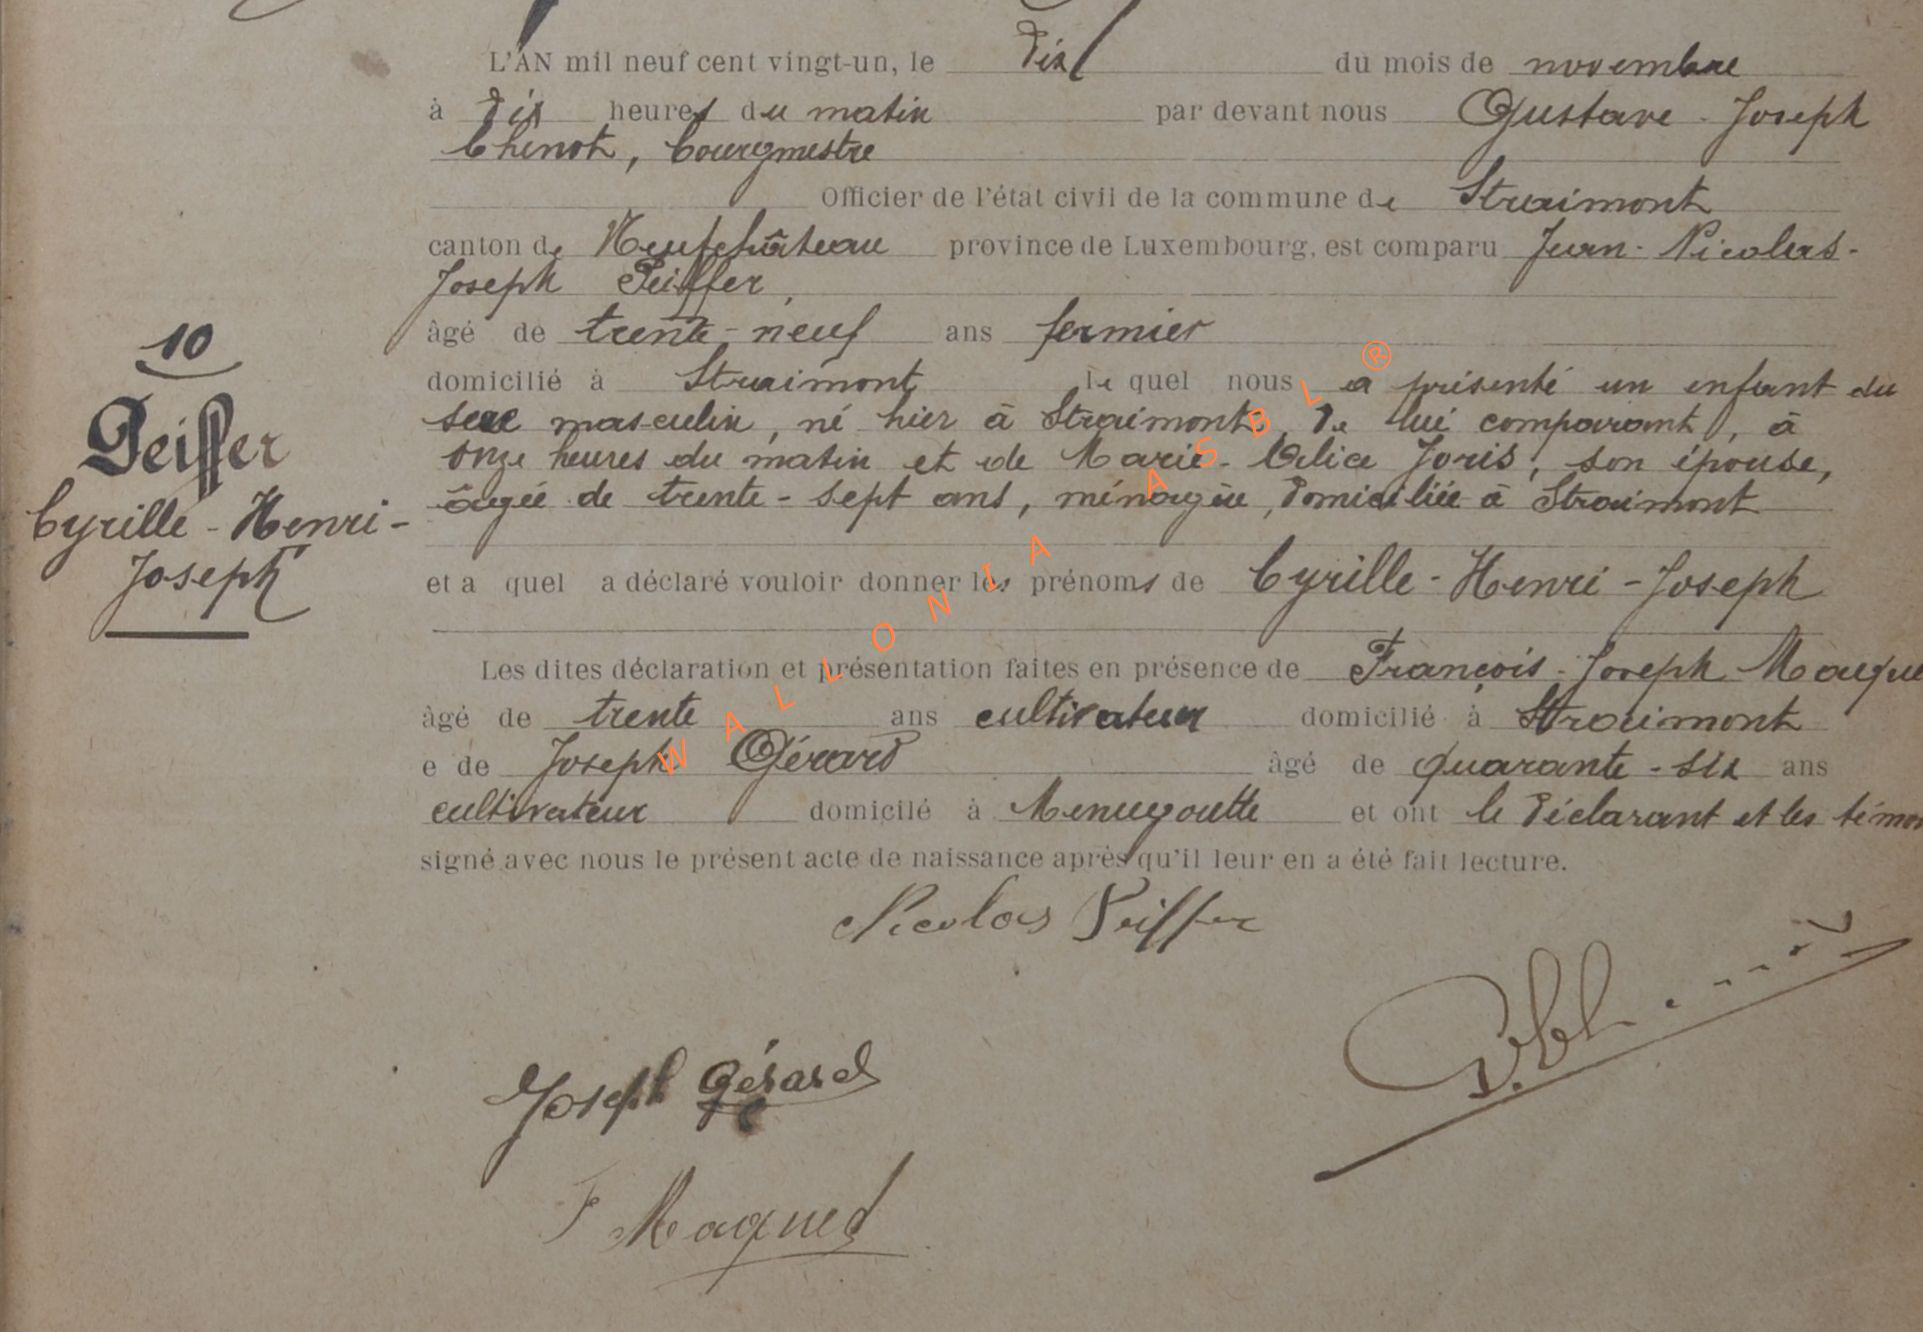 L'AN mil neuf cent vingt-un, le dix du mois de novembre
à dix heures du matin par devant nous Gustave Joseph
Chenot, bourgmestre
Officier de l'état civil de la commune de Straimont
canton de Neufchâteau province de Luxembourg, est comparu Jean-Nicolas-
Joseph Peiffer,
âgé de trente-neuf ans fermier
domicilié à Straimont le quel nous a présenté un enfant du
sexe masculin, né hier à Straimont, de lui comparant, à
onze heures du matin et de Marie-Célice Joris, son épouse,
âgée de trente-sept ans, ménagère, domiciliée à Straimont
et a quel a déclaré vouloir donner les prénoms de Cyrille-Henri-Joseph
Les dites déclaration et présentation faites en présence de François-Joseph Maque
âgé de trente ans cultivateur domicilié à Straimont
e de Joseph Gérard âgé de quarante-six ans
cultivateur domicilé à Menugoutte et ont le déclarant et les témo
signé avec nous le présent acte de naissance après qu'il leur en a été fait lecture.
10
Peiffer
Cyrille-Henri-
Joseph
Nicolas Peiffer
Joseph Gérard
F Maquet
WALLONIA ASBL ®